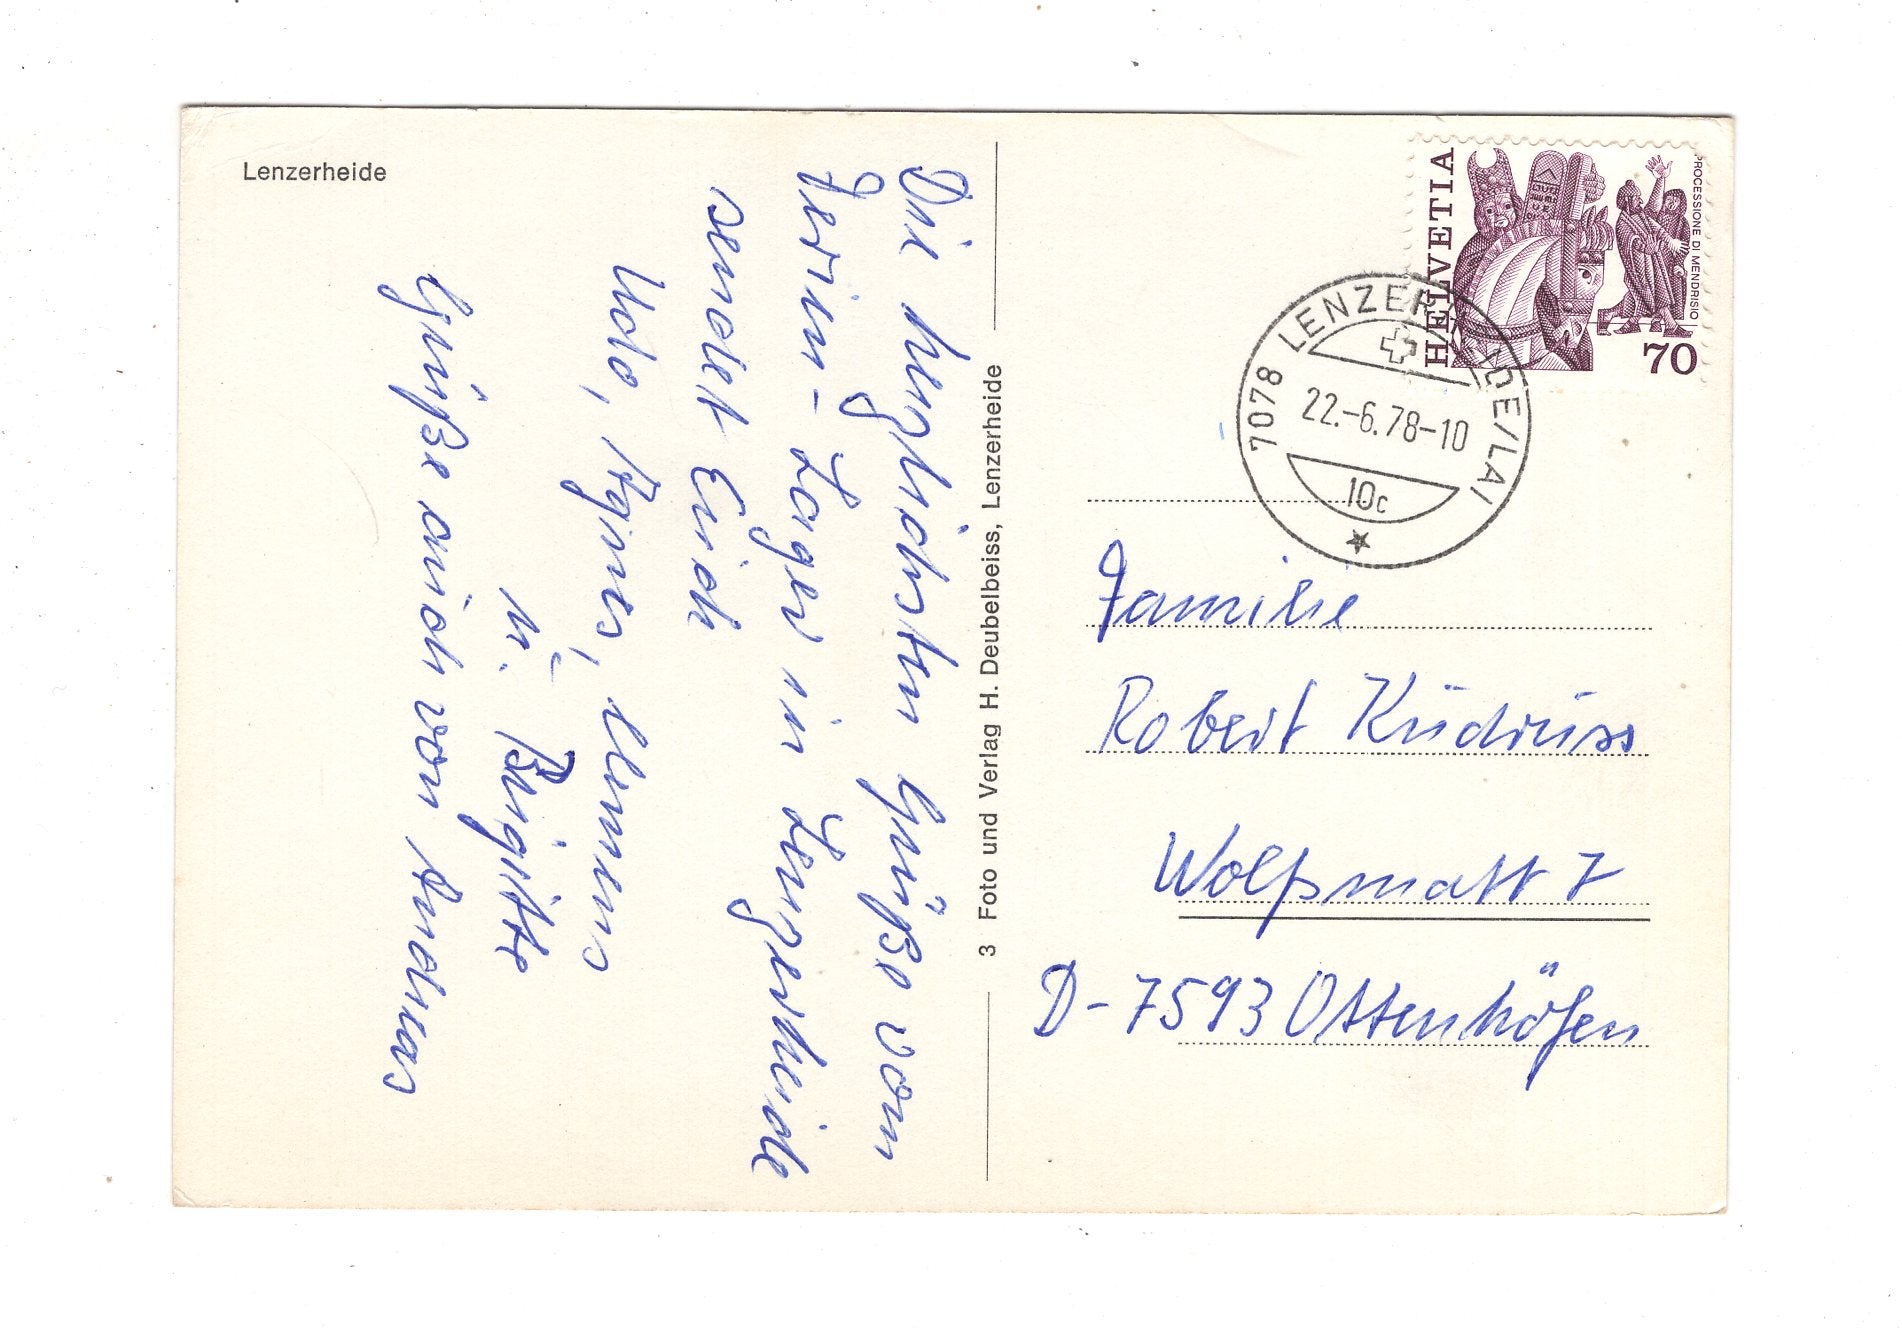 Lenzerheide
Die herzlichsten Grüße vom
Ferien-Lager in Lenzerheide
sendet Euch
Udo, Agnes, Clemens
u. Brigitte
Grüße auch von Andreas
3 Foto und Verlag H. Deubelbeiss, Lenzerheide
HELVETIA
PROCESSIONE DI MENDRISIO
70
7078 LENZERHEIDE/LAI
22.-6.78-10
10c
Familie
Robert
Wolfsmatt 7
D-7593 Ottenhöfen